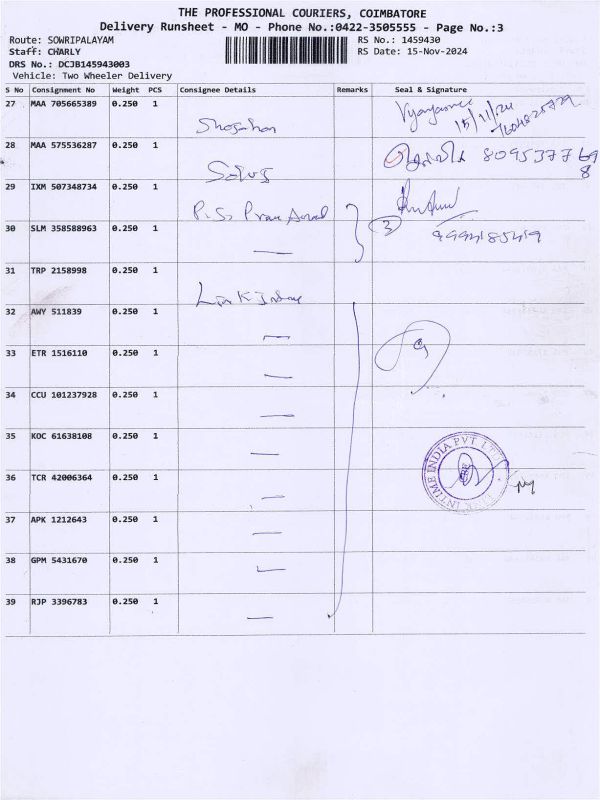 THE PROFESSIONAL COURIERS, COIMBATORE
Delivery Runsheet - MO - Phone No.:0422-3505555 - Page No.:3
Route: SOWRIPALAYAM RS No.: 1459430
Staff: CHARLY RS Date: 15-Nov-2024
DRS No.: DCJB145943003
Vehicle: Two Wheeler Delivery
S No Consignment No Weight PCS Consignee Details Remarks Seal & Signature
27 MAA 705665389 0.250 1
15/11/24
28 MAA 575536287 0.250 1
29 IXM 507348734 0.250 1
30 SLM 358588963 0.250 1
3
31 TRP 2158998 0.250 1
32 AWY 511839 0.250 1
33 ETR 1516110 0.250 1
9
34 CCU 101237928 0.250 1
35 KOC 61638108 0.250 1
INTIME INDIA PVT LTD
36 TCR 42006364 0.250 1
37 APK 1212643 0.250 1
38 GPM 5431670 0.250 1
39 RJP 3396783 0.250 1